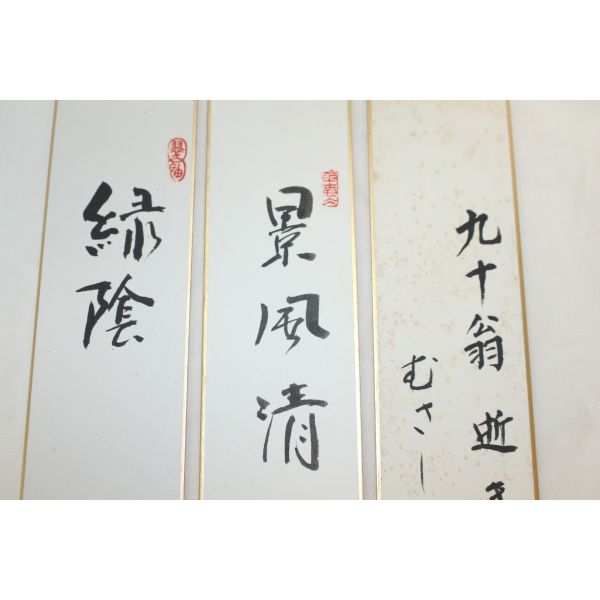 九十翁 逝き
むさし
景風清
緑陰